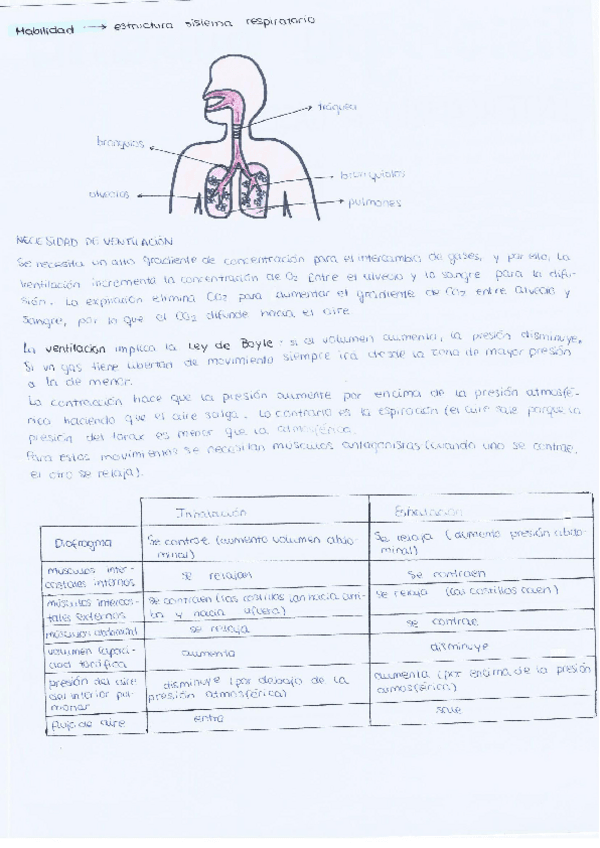 Habilidad → estructura sistema respiratorio
tráquea
bronquios
bronquiolos
alveolos
pulmones
NECESIDAD DE VENTILACIÓN
Se necesita un alto gradiente de concentración para el intercambio de gases, y por esto, la
ventilación incrementa la concentración de O₂ entre el alveolo y la sangre para la difu-
sión. La expiración elimina CO₂ para aumentar el gradiente de CO₂ entre alveolo y
sangre, por lo que el CO₂ difunde hacia el aire
La ventilación implica la Ley de Boyle: si el volumen aumenta, la presión disminuye,
Si un gas tiene libertad de movimiento siempre irá desde la zona de mayor presión
a la de menor.
La contracción hace que la presión aumente por encima de la presión atmosfé-
rica haciendo que el aire salga. Lo contrario es la espiración (el aire sale porque la
presión del torax es menor que la atmosférica.
Para estos movimientos se necesitan músculos antagonistas (cuando uno se contrae,
el otro se relaja).
Inhalación Exhalación
Diafragma Se contrae (aumento volumen abdo-
minal) Se relaja (aumenta presión abdo-
minal)
músculos inter-
costales internos se relajan Se contraen
músculos intercos-
tales externos se contraen (las costillas van hacia arri-
ba y hacia afuera) se relaja (las costillas caen)
músculos abdominal se relaja se contrae
volumen (capaci-
dad torácica aumenta disminuye
presión del aire
del interior pul-
monar disminuye (por debajo de la
presión atmosférica) aumenta (por encima de la presión
atmosférica)
flujo de aire entra sale